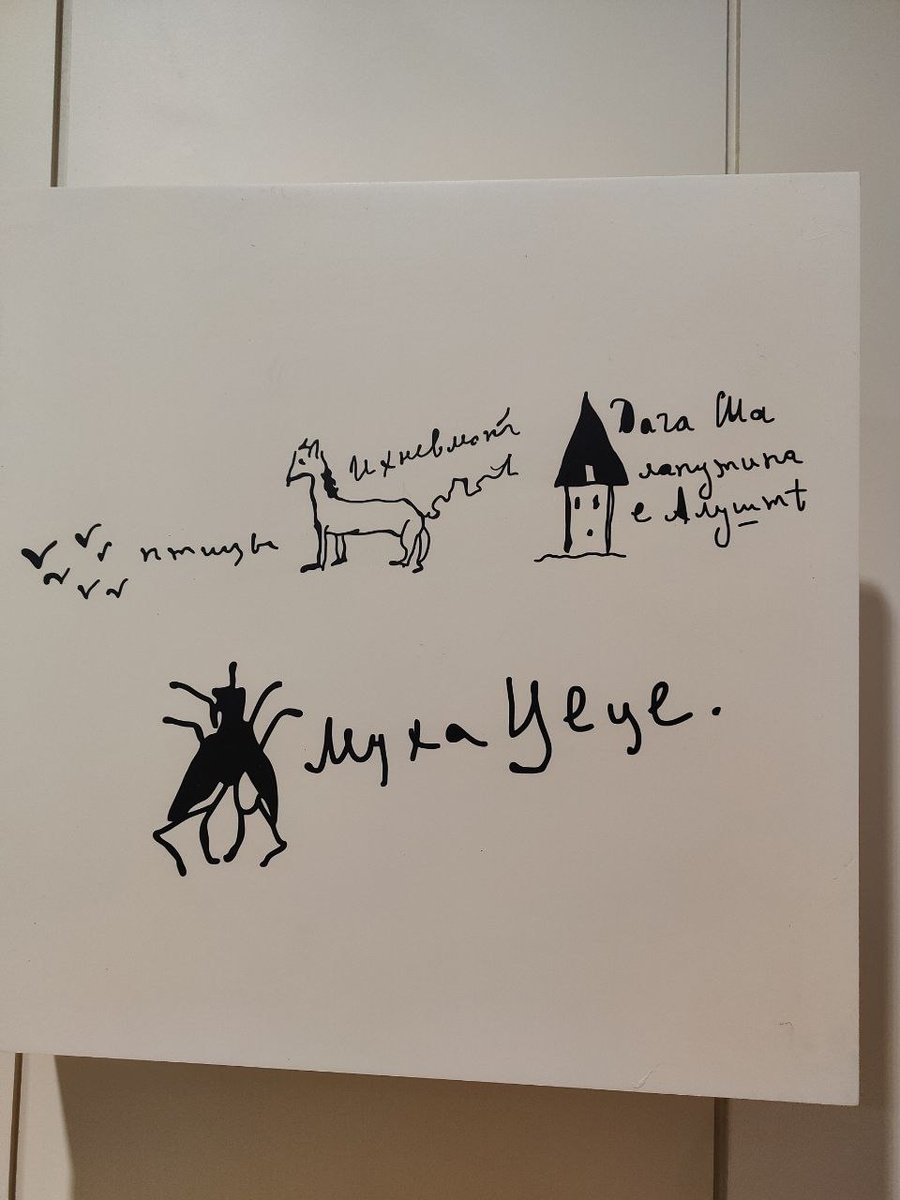 птицы
Ихневмонъ
Дача Ша
лапутина
в Алуштѣ
Муха Цеце.